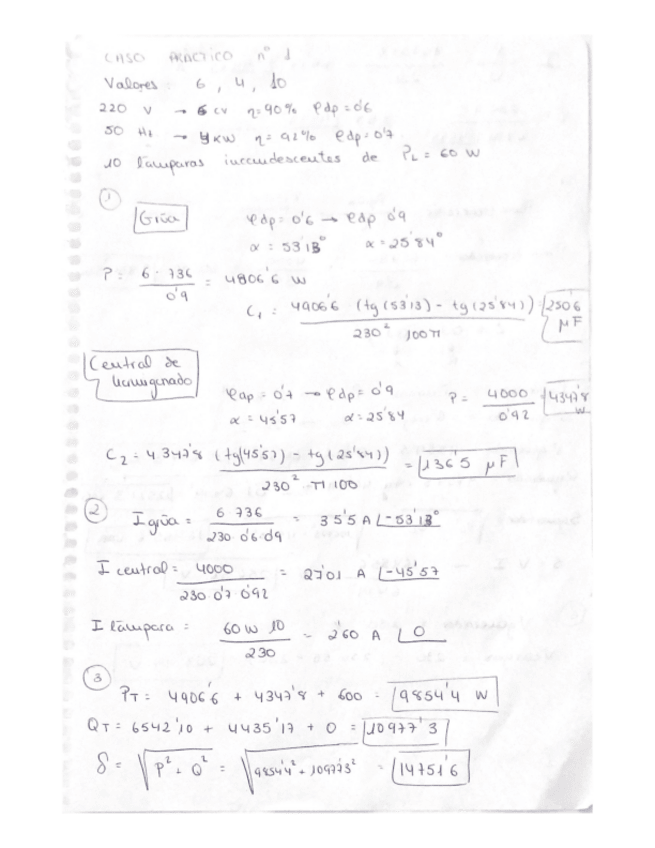 CASO PRACTICO nº 1
Valores: 6, 4, 10
220 V → 6 cv η=90% fdp=0'6
50 Hz → 4 kW η=92% fdp=0'7
10 lámparas incandescentes de PL = 60 W
① Grúa fdp = 0'6 → fdp 0'9
α = 53'13° α = 25'84°
P = 6 · 736 / 0'9 = 4806'6 W
C1 = 4906'6 (tg(53'13) - tg(25'84)) / 230² 100π = 250'6 μF
Central de hormigonado
fdp = 0'7 → fdp = 0'9 P = 4000 / 0'92 = 4347'8 W
α = 45'57 α = 25'84
C2 = 4.347'8 (tg(45'57) - tg(25'84)) / 230² π 100 = 136'5 μF
② I grúa = 6 736 / 230 · 0'6 · 0'9 = 35'5 A ∠-53'13°
I central = 4000 / 230 0'7 0'92 = 27'01 A ∠-45'57
I lámpara = 60 W 10 / 230 = 2'60 A ∠0
③ PT = 4906'6 + 4347'8 + 600 = 9854'4 W
QT = 6542'10 + 4435'17 + 0 = 10977'3
S = √P² + Q² = √9854'4² + 10977'3² = 14751'6